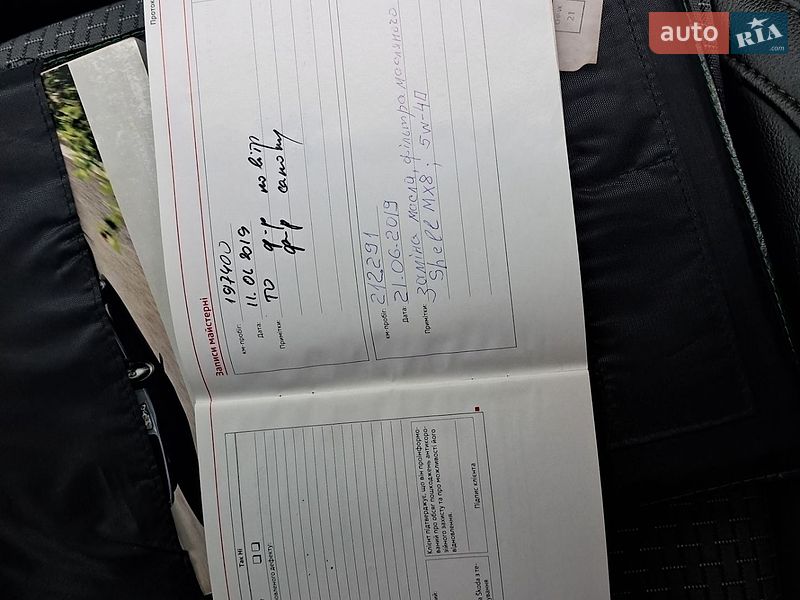 Записи майстерні
км-пробіг: 197400
Дата: 11.02.2019
Примітки: ТО ф-р повітр
ф-р салону
км-пробіг: 212291
Дата: 21.06.2019
Примітки: Заміна масла, фільтра масляного
Shell MX8; 5W-40
Так Ні
Клієнт підтверджує, що він проінформо-
ваний про обсяг пошкоджень антикоро-
зійного захисту та про можливості його
відновлення.
Підпис клієнта
Skoda з те-
21
auto RIA
.com